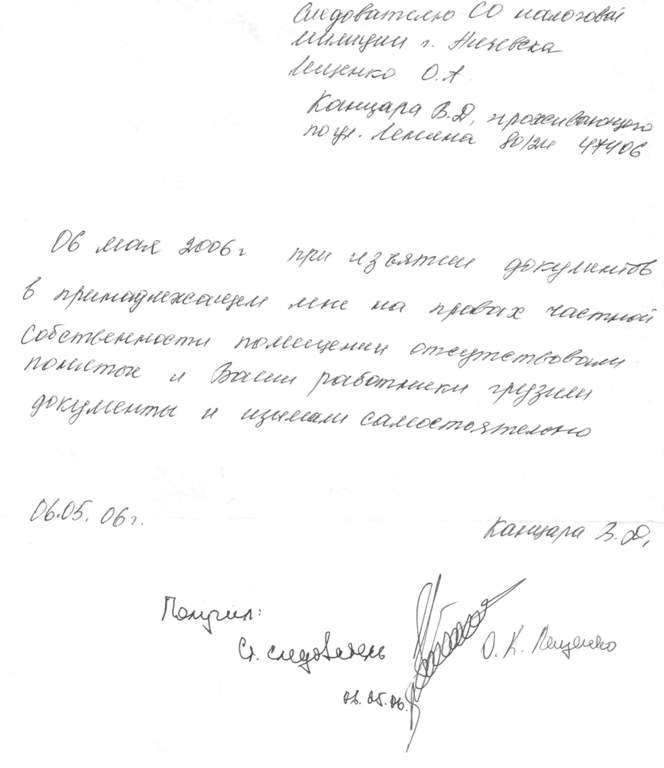 Следователю СО налоговой
милиции г. Ничевска
Лищенко О.А.
Канцара В.Д, проживающего
по ул. Ленина 80/24 47406
06 мая 2006г при изъятии документов
в принадлежащем мне на правах частной
собственности помещении отсутствовали
понятые и Ваши работники грузили
документы и изымали самостоятельно
06.05.06г.
Канцара В.Д,
Получил:
Ст. следователь
О. К. Лещенко
06.05.06.